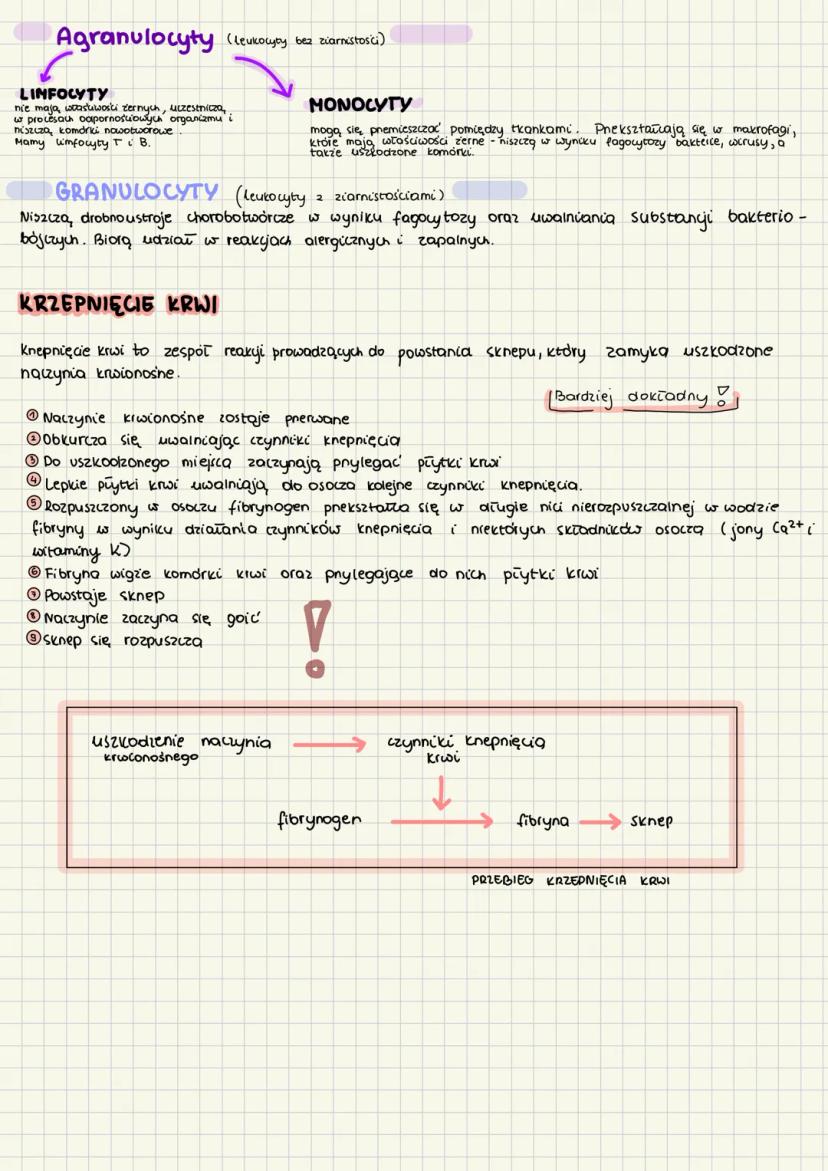 Agranulocyty (leukocyty bez ziarnistości)
LIMFOCYTY
nie mają właściwości żernych, uczestniczą
w procesach odpornościowych organizmu i
niszczą komórki nowotworowe.
Mamy limfocyty T i B.
MONOCYTY
mogą się przemieszczać pomiędzy tkankami. Przekształcają się w makrofagi,
które mają właściwości żerne - niszczą w wyniku fagocytozy bakterie, wirusy, a
także uszkodzone komórki.
GRANULOCYTY (leukocyty z ziarnistościami)
Niszczą drobnoustroje chorobotwórcze w wyniku fagocytozy oraz uwalniania substancji bakterio-
bójczych. Biorą udział w reakcjach alergicznych i zapalnych.
KRZEPNIĘCIE KRWI
Krzepnięcie krwi to zespół reakcji prowadzących do powstania skrzepu, który zamyka uszkodzone
naczynia krwionośne.
Bardziej dokładny !
① Naczynie krwionośne zostaje przerwane
② Obkurcza się uwalniając czynniki krzepnięcia
③ Do uszkodzonego miejsca zaczynają przylegać płytki krwi
④ Lepkie płytki krwi uwalniają do osocza kolejne czynniki krzepnięcia.
⑤ Rozpuszczony w osoczu fibrynogen przekształca się w długie nici nierozpuszczalnej w wodzie
fibryny w wyniku działania czynników krzepnięcia i niektórych składników osocza (jony Ca²⁺ i
witaminy K)
⑥ Fibryna wiąże komórki krwi oraz przylegające do nich płytki krwi
⑦ Powstaje skrzep
⑧ Naczynie zaczyna się goić
⑨ Skrzep się rozpuszcza
!
uszkodzenie naczynia → czynniki krzepnięcia
krwionośnego krwi
fibrynogen → fibryna → skrzep
PRZEBIEG KRZEPNIĘCIA KRWI